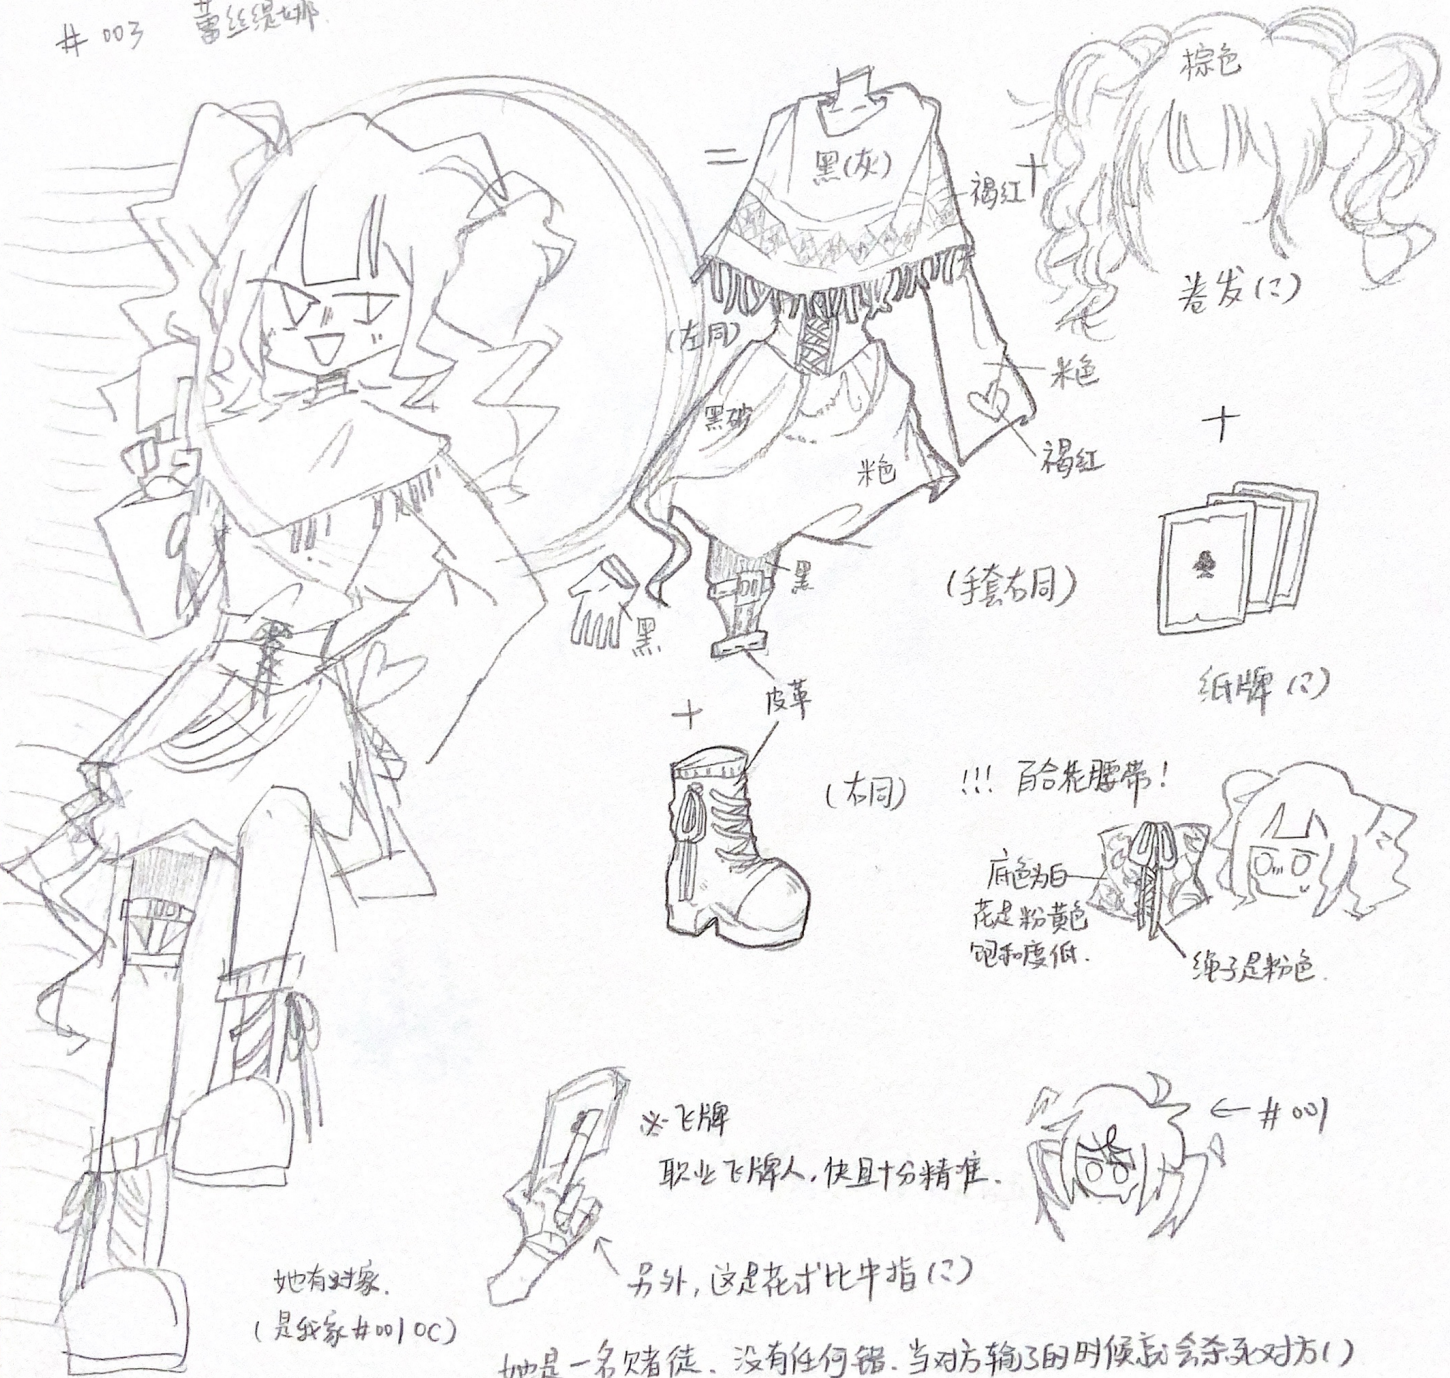 #003 蕾丝缇娜
棕色
黑(灰)
褐红
卷发(?)
(左同)
米色
褐红
黑破
米色
黑
(手套右同)
黑
皮革
纸牌(?)
(右同)
!!! 百合花腰带!
底色为白
花是粉黄色
饱和度低.
绳子是粉色.
※飞牌
职业飞牌人,快且十分精准.
←#001
另外,这是花式比中指(?)
她有对象.
(是我家#001 OC)
她是一名赌徒.没有任何错.当对方输了的时候就会杀死对方()